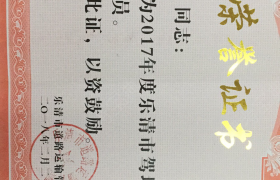 荣誉证书
同志：
为2017年度乐清市驾
员。
此证，以资鼓励。
乐清市道路运输
二〇一八年二月